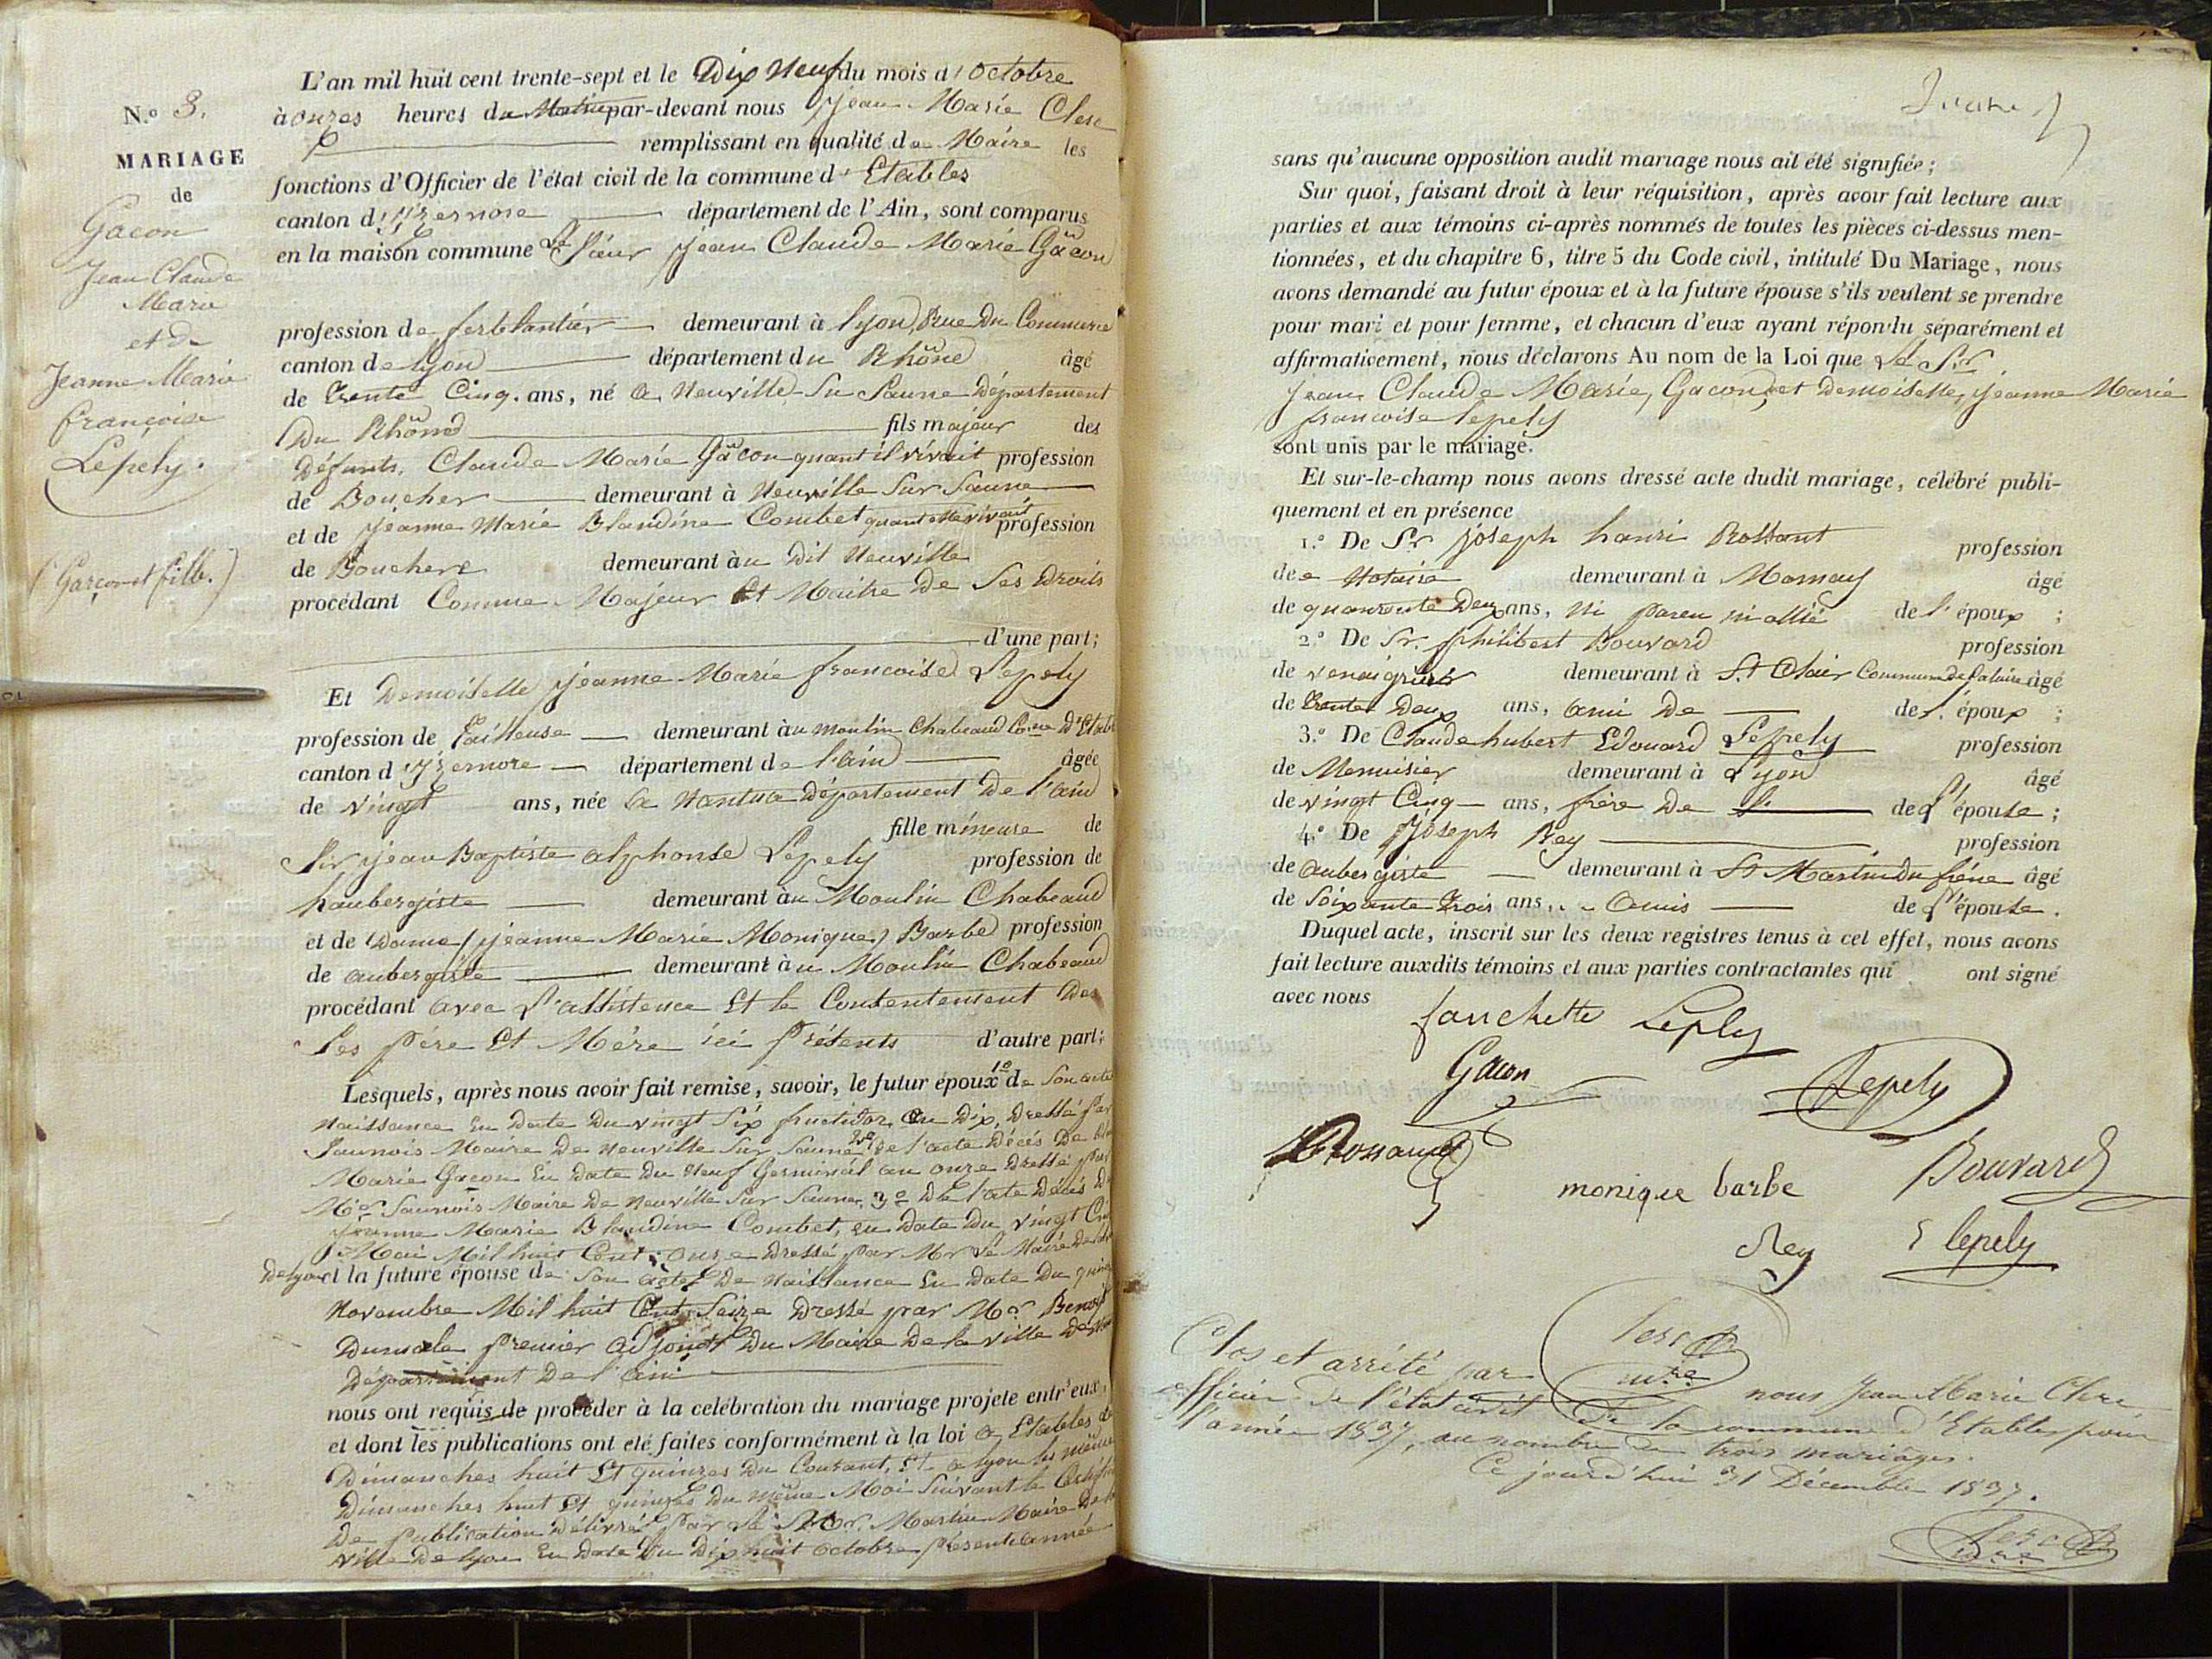 N.o 3.
MARIAGE
de
Gacon
Jean Claude
Marie
et de
Jeanne Marie
françoise
Lepely.
(Garçon et fille.)
L'an mil huit cent trente-sept et le Dix Neuf du mois d'Octobre
à onzes heures du Matin par-devant nous jean Marie Clerc
remplissant en qualité de Maire les
fonctions d'Officier de l'état civil de la commune d'Etables
canton d'Izernore département de l'Ain, sont comparus
en la maison commune Le sieur jean Claude Marie Gacon
profession de ferblantier demeurant à lyon, Rue Du Commerce
canton de lyon département du Rhône âgé
de trente Cinq ans, né a Neuville Su Saune Département
Du Rhône fils majeur des
Défunts, Claude Marie Gacon quant il vivait profession
de Boucher demeurant à Neuville Sur Saune
et de jeanne Marie Blandine Combet quant elle vivait profession
de Bouchere demeurant au Dit Neuville
procédant Comme Majeur Et Maitre De Ses Droits
d'une part;
Et Demoiselle jeanne Marie francoise Lepely
profession de Tailleuse demeurant au moulin Chabeaud Co.ne D'Etabl
canton d'Izernore département de l'ain âgée
de vingt ans, née a Nantua Département De l'ain
fille mineure de
Sir jean Baptiste alphonse Lepely profession de
haubergiste demeurant au Moulin Chabeaud
et de Dame jeanne Marie Monique Barbe profession
de aubergiste demeurant au Moulin Chabeaud
procédant avec L'assistence Et le Consentement Des
Ses Père Et Mère ici Présents d'autre part;
Lesquels, après nous avoir fait remise, savoir, le futur époux 1.o de Son acte
Naissance En Date Du vingt Six fructidor an Dix, Dressé Par
Saunois Maire De Neuville Sur Saune 2.o De l'acte Décés De
Marie Gacon En Date Du Neuf Germinal an onze Dressé par
Mr Saunois Maire De Neuville Sur Saune, 3.o De l'acte Décés
jeanne Marie Blandine Combet, en Date Du vingt
Mai Mil huit Cent onze Dressé par Mr Le Maire De
De lyon et la future épouse de Son acte De Naissance En Date Du
Novembre Mil huit Cent Seize Dressé par Mr.
premier adjoint Du Maire De la ville De
Département De l'ain
nous ont requis de procéder à la celébration du mariage projete entr'eux,
et dont les publications ont eté faites conformément à la loi a Etables
Dimanches huit Et quinzes Du Courant, Et a lyon les même
Dimanches huit Et quinzes Du même Moi Suivant le
De Publication Délivré Par Le Mr. Martin Maire De
ville De lyon En Date Du Dix huit octobre présente année
sans qu'aucune opposition audit mariage nous ait été signifiée;
Sur quoi, faisant droit à leur réquisition, après avoir fait lecture aux
parties et aux témoins ci-après nommés de toutes les pièces ci-dessus men-
tionnées, et du chapitre 6, titre 5 du Code civil, intitulé Du Mariage, nous
avons demandé au futur époux et à la future épouse s'ils veulent se prendre
pour mari et pour femme, et chacun d'eux ayant répondu séparément et
affirmativement, nous déclarons Au nom de la Loi que Le Sr
jean Claude Marie, Gacon, et Demoiselle, jeanne Marie
francoise lepely
sont unis par le mariage.
Et sur-le-champ nous avons dressé acte dudit mariage, célébré publi-
quement et en présence
1.o De Sr joseph hanri Rossant profession
de Notaire demeurant à Mornay âgé
de quaronte Deux ans, ni paren ni allié de l'époux;
2.o De Sr. philibert Bouvard profession
de demeurant à St Clair Commune De âgé
de trente Deux ans, ami De de l'époux;
3.o De Claude hubert Edouard Lepely profession
de Menuisier demeurant à Lyon âgé
de vingt Cinq ans, frère De l' de l'épouse;
4.o De joseph Rey profession
de aubergiste demeurant à St Martin Du frêne âgé
de Soixante trois ans, Amis de l'épouse.
Duquel acte, inscrit sur les deux registres tenus à cet effet, nous avons
fait lecture auxdits témoins et aux parties contractantes qui ont signé
avec nous
fanchette Leply
Gacon Lepely
Rossand
monique barbe Bouvard
Rey E lepely
Clerc
Clos et arrêté par nous Jean Marie Clerc
officier de l'état civil de la commune d'Etables pour
l'année 1837, au nombre de trois mariages.
Ce jourd'hui 31 Décembre 1837.
Clerc